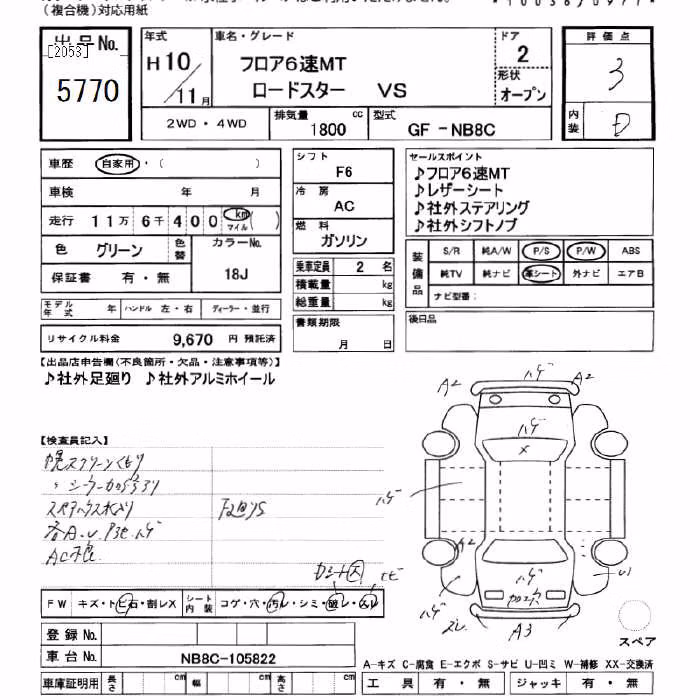 （複合機）対応用紙
出品No.
[2053]
5770
年式
H 10/11月
車名・グレード
フロア6速MT
ロードスター VS
ドア
2
形状
オープン
評価点
3
内装
D
2WD・4WD
排気量
1800 cc
型式
GF-NB8C
車歴 自家用・（ ）
車検 年 月
走行 11万 6千 400 km マイル （ ）
色 グリーン 色替 カラーNo. 18J
保証書 有・無
モデル年式 年 ハンドル 左・右 ディーラー・並行
リサイクル料金 9,670 円 預託済
シフト
F6
冷房
AC
燃料
ガソリン
乗車定員 2 名
積載量 kg
総重量 kg
書類期限
月 日
セールスポイント
♪フロア6速MT
♪レザーシート
♪社外ステアリング
♪社外シフトノブ
装備品
S/R 純A/W P/S P/W ABS
純TV 純ナビ 革シート 外ナビ エアB
ナビ型番：
後日品
【出品店申告欄（不良箇所・欠品・注意事項等）】
♪社外足廻り ♪社外アルミホイール
【検査員記入】
幌スクリーンくもり
AC不良
FW キズ・トビ石・割レX シート内装 コゲ・穴・汚レ・シミ・破レ・スレ
登録No.
車台No. NB8C-105822
車庫証明用 長さ cm 幅 cm 高さ cm
A2
ハゲ
A2
ハゲ
X
ハゲ
A2
ハゲ
ハゲ
A3
スペア
A-キズ C-腐食 E-エクボ S-サビ U-凹ミ W-補修 XX-交換済
工具 有・無 ジャッキ 有・無